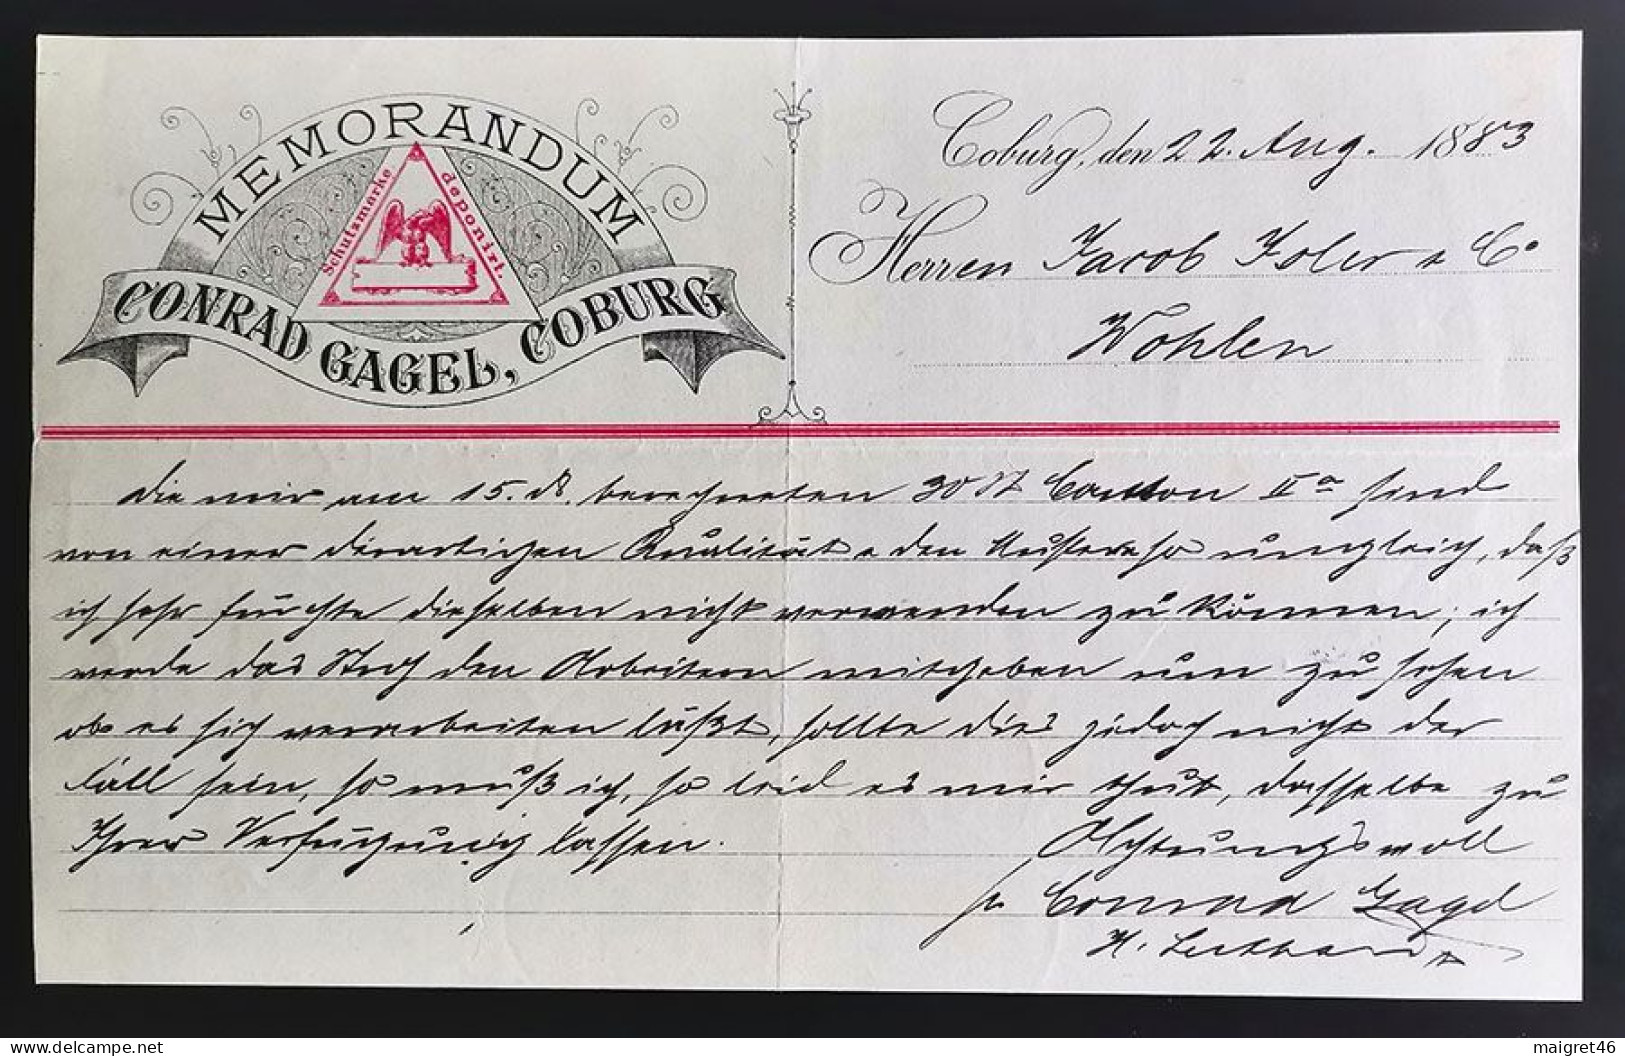 MEMORANDUM
Schutzmarke deponirt.
CONRAD GAGEL, COBURG
Coburg, den 22. Aug. 1883
Herren Jacob Isler & Co
Wohlen
Die mir am 15. ds. berechneten 30 St Cotton IIa sind
von einer derartigen Qualität & den Mustern so ungleich, daß
ich sehr fürchte dieselben nicht verwenden zu können; ich
werde das den Arbeitern mitgeben um zu sehen
ob es sich verarbeiten läßt, sollte dies jedoch nicht der
Fall sein, so muß ich, so leid es mir thut, dasselbe zu
Ihrer Verfügung lassen.
Achtungsvoll
pr Conrad Gagel
H.
delcampe.net
maigret46